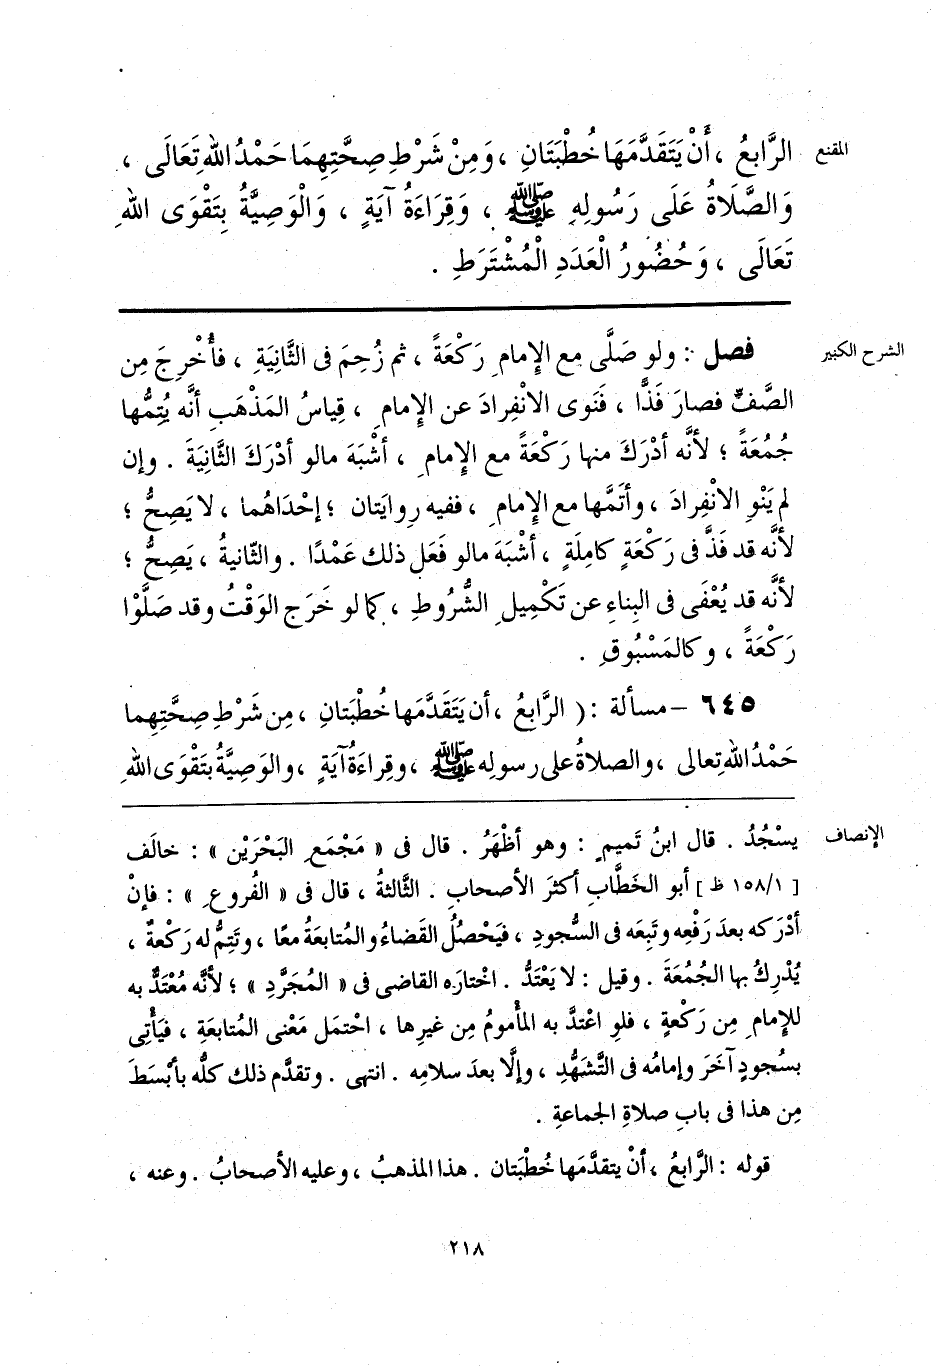 المقنع
الرَّابِعُ ، أَنْ يَتَقَدَّمَهَا خُطْبَتَانِ ، وَمِنْ شَرْطِ صِحَّتِهِمَا حَمْدُ اللهِ تَعَالَى ،
وَالصَّلَاةُ عَلَى رَسُولِهِ ﷺ ، وَقِرَاءَةُ آيَةٍ ، وَالْوَصِيَّةُ بِتَقْوَى اللهِ
تَعَالَى ، وَحُضُورُ الْعَدَدِ الْمُشْتَرَطِ .
الشرح الكبير
فصل : ولو صَلَّى مع الإِمامِ رَكْعَةً ، ثم زُحِمَ فى الثَّانِيَةِ ، فأُخْرِجَ مِن
الصَّفِّ فصارَ فَذًّا ، فَنَوى الانْفِرادَ عن الإِمامِ ، قِياسُ المَذْهَبِ أنَّه يُتِمُّها
جُمُعَةً ؛ لأنَّه أدْرَكَ منها رَكْعَةً مع الإِمامِ ، أشْبَهَ مالو أدْرَكَ الثَّانِيَةَ . وإن
لم يَنْوِ الانْفِرادَ ، وأتَمَّها مع الإِمامِ ، ففيه رِوايَتان ؛ إحْدَاهُما ، لا يَصِحُّ ؛
لأنَّه قد فَذَّ فى رَكْعَةٍ كامِلَةٍ ، أشْبَهَ مالو فَعَل ذلك عَمْدًا . والثّانيةُ ، يَصِحُّ ؛
لأنَّه قد يُعْفَى فى البِناءِ عن تَكْمِيلِ الشُّرُوطِ ، كما لو خَرَج الوَقْتُ وقد صَلَّوْا
رَكْعَةً ، وكالمَسْبُوقِ .
٦٤٥ – مسألة : ( الرَّابِعُ ، أن يَتَقَدَّمَها خُطْبَتانِ ، مِن شَرْطِ صِحَّتِهِما
حَمْدُ اللهِ تعالى ، والصلاةُ على رسولِه ﷺ ، وقِراءَةُ آيَةٍ ، والوَصِيَّةُ بتَقْوَى اللهِ
الإنصاف
يسْجُدُ . قال ابنُ تَميمٍ : وهو أظْهَرُ . قال فى « مَجْمَعِ البَحْرَيْن » : خالَف
[ ١٥٨/١ ظ ] أبو الخَطَّابِ أكثرَ الأصحابِ . الثَّالثةُ ، قال فى « الفُروعِ » : فإنْ
أدْرَكه بعدَ رَفْعِه وتَبِعَه فى السُّجودِ ، فيَحْصُلُ القَضاءُ والمُتابعَةُ معًا ، وتَتِمُّ له رَكْعةٌ ،
يُدْرِكُ بها الجُمُعَةَ . وقيل : لا يَعْتَدُّ . اخْتارَه القاضى فى « المُجَرَّدِ » ؛ لأنَّه مُعْتَدٌّ به
للإِمامِ مِن رَكْعةٍ ، فلوِ اعْتَدَّ به المأْمومُ مِن غيرِها ، احْتمَل مَعْنى المُتابعَةِ ، فيَأْتِى
بسُجودٍ آخَرَ وإمامُه فى التَّشَهُّدِ ، وإلَّا بعدَ سلامِه . انتهى . وتقدَّم ذلك كلُّه بأبْسَطَ
مِن هذا فى بابِ صلاةِ الجماعةِ .
قوله : الرَّابعُ ، أنْ يتقدَّمَها خُطْبَتان . هذا المذهبُ ، وعليه الأصحابُ . وعنه ،
٢١٨